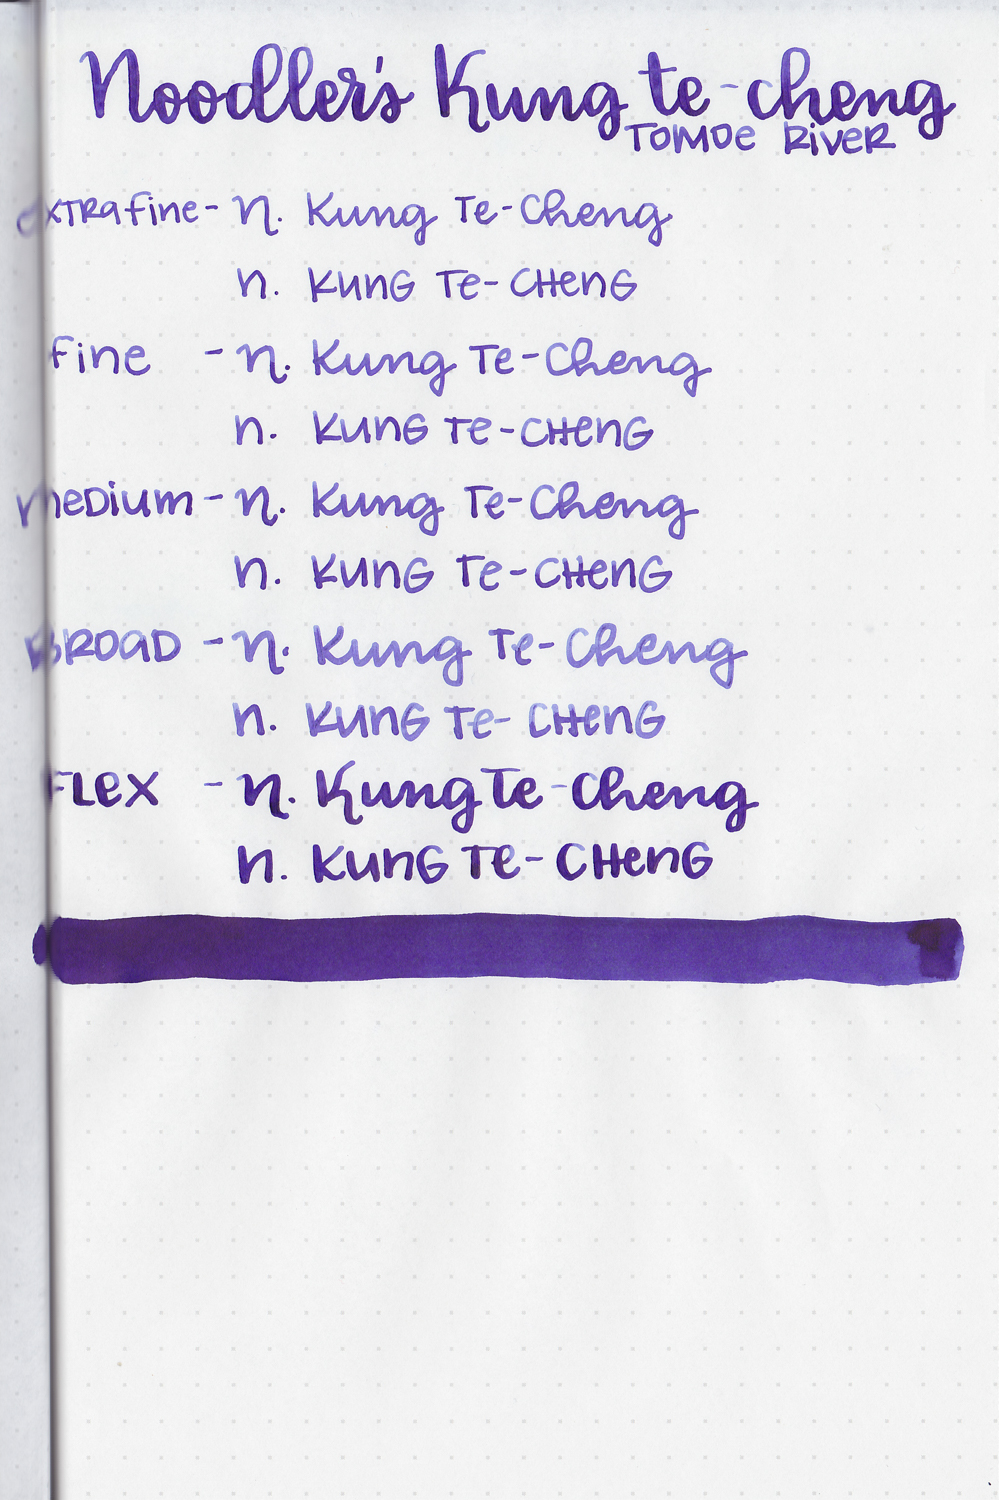 Noodler's Kung te-cheng
Tomoe River
Extra fine - N. Kung Te-Cheng
N. KUNG Te-CHENG
fine - N. Kung Te-Cheng
N. KUNG Te-CHENG
Medium - N. Kung Te-Cheng
N. KUNG Te-CHENG
BROAD - N. Kung Te-Cheng
N. KUNG Te-CHENG
FLEX - N. Kung Te-Cheng
N. KUNG Te-CHENG